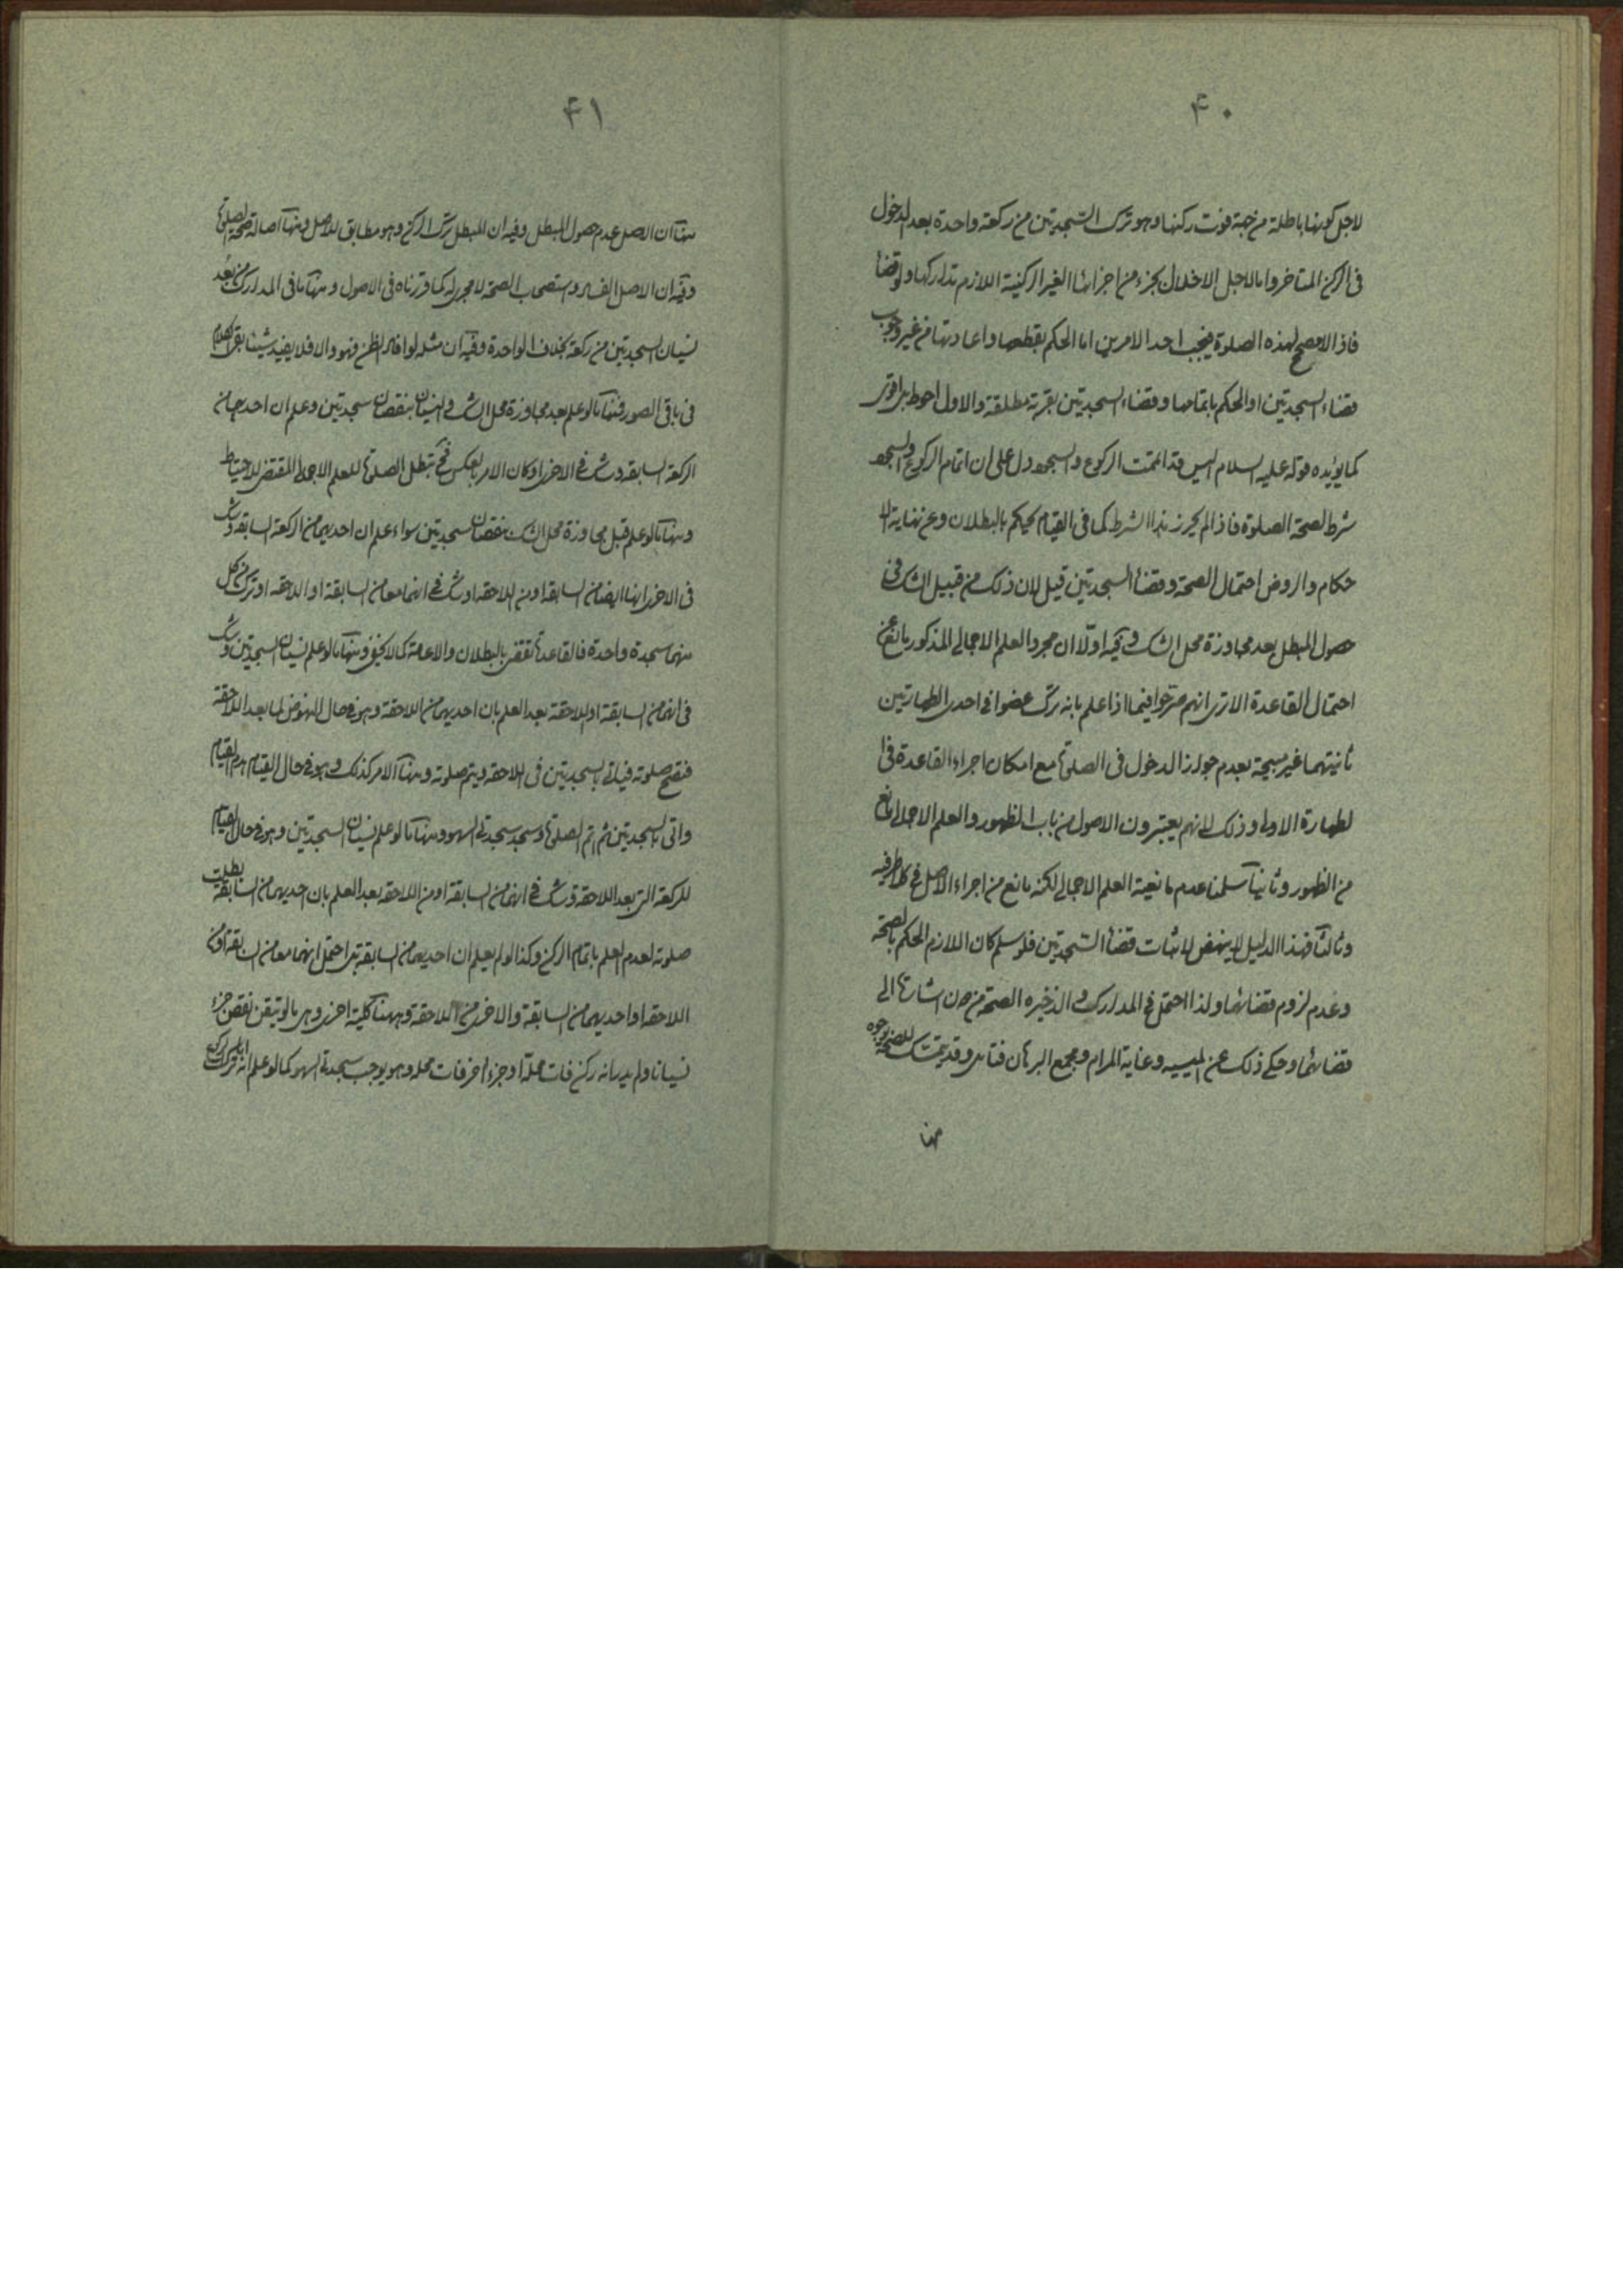 ۴۰
لاجل كونها باطلة من جهة فوت ركنها وهو ترك السجدتين من ركعة واحدة بعد الدخول
فى الركن المتاخر واما لاجل الاخلال بجزء من اجزائها الغير الركنية اللازم تداركها ولو قضاء
فاذا لا مصحح لهذه الصلوة فيجب احد الامرين اما الحكم بقطعها واعادتها من غير وجوب
قضاء السجدتين او الحكم باتمامها وقضاء السجدتين بقربة مطلقة والاول احوط بل اقوى
كما يؤيده قوله عليه السلام اليس قد اتممت الركوع والسجود دل على ان اتمام الركوع والسجود
شرط لصحة الصلوة فاذا لم يحرز هذا الشرط كما فى القيام يحكم بالبطلان وعن نهاية الا
حكام والروض احتمال الصحة وقضاء السجدتين قيل لان ذلك من قبيل الشك فى
حصول المبطل بعد مجاوزة محل الشك وفيه اولا ان مجرد العلم الاجمالى المذكور مانع عن
احتمال القاعدة الا ترى انهم صرحوا فيما اذا علم بانه ترك عضوا فى احدى الطهارتين
ثانيتهما غير مبيحة بعدم جواز الدخول فى الصلوة مع امكان اجراء القاعدة فى ا
لطهارة الاولى وذلك لانهم يعتبرون الاصول من باب الظهور والعلم الاجمالى مانع
من الظهور وثانيا سلمنا عدم مانعية العلم الاجمالى لكنه مانع من اجراء الاصل فى كلا طرفيه
وثالثا فهذا الدليل لا ينهض لاثبات قضاء السجدتين فلو سلم كان اللازم الحكم بالصحة
وعدم لزوم قضائهما ولذا احتمل فى المدارك والذخيره الصحة من دون اشارة الى
قضائهما وحكى ذلك عن الميسيه وغاية المرام ومجمع البرهان فتامل وقد يتمسك للصحة بوجوه
منها
۴۱
منها ان الاصل عدم حصول المبطل وفيه ان المبطل ترك الركن وهو مطابق للاصل ومنها اصالة صحة الصلوة
وفيه ان الاصل الفساد واستصحاب الصحة لا مجرى له كما قررناه فى الاصول ومنها ما فى المدارك من بعد
نسيان السجدتين من ركعة بخلاف الواحدة وفيه ان مثله لو افاد الظن فهو والا فلا يفيد شيئا بقى الكلام
فى باقى الصور فمنها ما لو علم بعد مجاوزة محل الشك والنسيان بنقصان سجدتين وعلم ان احديهما من
الركعة السابقه وشك فى الاخرى او كان الامر بالعكس فح تبطل الصلوة للعلم الاجمالى المقتضى للاحتياط
ومنها ما لو علم قبل مجاوزة محل الشك بنقصان سجدتين سواء علم ان احديهما من الركعة السابقه وشك
فى الاخرى انها ايضا من السابقه او من اللاحقه او شك فى انهما معا من السابقة او اللاحقه او ترك من كل
منهما سجدة واحدة فالقاعدة تقتضى بالبطلان والاعادة كما لا يخفى ومنها ما لو علم نسيان السجدتين وشك
فى انهما من السابقة او اللاحقة بعد العلم بان احديهما من اللاحقة وهو فى حال النهوض لما بعد اللاحقة
فتصح صلوته فياتى بالسجدتين فى اللاحقه ويتم صلوته ومنها الامر كذلك وهو فى حال القيام هدم القيام
واتى بالسجدتين ثم اتم الصلوة وسجد سجدتى السهو ومنها ما لو علم نسيان السجدتين وهو فى حال القيام
للركعة التى بعد اللاحقة وشك فى انهما من السابقة او من اللاحقه بعد العلم بان احديهما من السابقة بطلت
صلوته لعدم العلم باتمام الركن وكذا لو لم يعلم ان احديهما من السابقة بل احتمل انهما معا من السابقة او من
اللاحقه او احديهما من السابقة والاخرى من اللاحقة وههنا كلية اخرى وهى ما لو تيقن نقص جزء
نسيانا ولم يدر انه ركن فات محله او جزء اخر فات محله وهو يوجب سجدتى السهو كما لو علم انه ترك